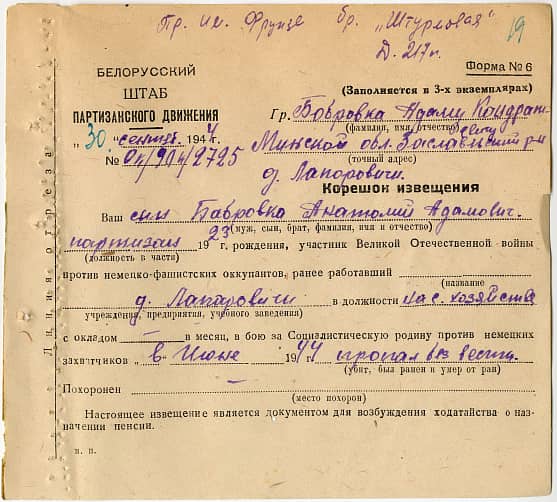 Пр. им. Фрунзе бр. "Штурмовая" 19
Д. 217 п.
Форма № 6
БЕЛОРУССКИЙ
ШТАБ
ПАРТИЗАНСКОГО ДВИЖЕНИЯ
"30" сентяб 1944 г.
№ 04/904/2725
(Заполняется в 3-х экземплярах)
Гр. Бобровка Адам Кондрат
(фамилия, имя, отчество) евичу
Минской обл. Заславльский р-н
(точный адрес)
д. Лапоровичи.
Корешок извещения
Ваш сын Бабровко Анатолий Адамович.
(муж, сын, брат, фамилия, имя и отчество)
партизан 1923 г. рождения, участник Великой Отечественной войны
(должность в части)
против немецко-фашистских оккупантов, ранее работавший
(название)
д. Лапоровичи в должности на с. хозяйстве
учреждения, предприятия, учебного заведения)
с окладом — в месяц, в бою за Социалистическую родину против немецких
захватчиков "в Июне 1944 пропал без вести.
(убит, был ранен и умер от ран)
Похоронен —
(место похорон)
Настоящее извещение является документом для возбуждения ходатайства о наз-
начении пенсии.
н. п.
Линия отреза